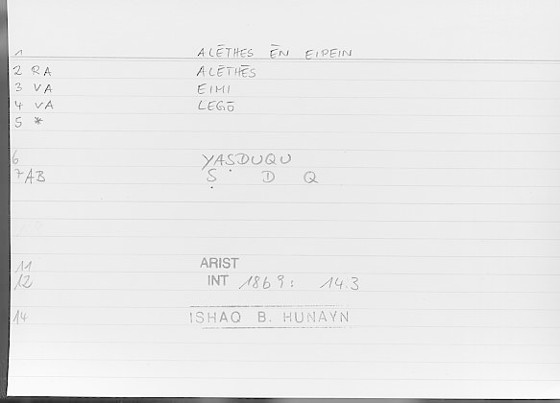 1 ALĒTHES ĒN EIPEIN
2 RA ALĒTHĒS
3 VA EIMI
4 VA LEGŌ
5 *
6 YAṢDUQU
7 AB Ṣ D Q
11 ARIST
12 INT 1869: 14.3
14 ISHAQ B. HUNAYN